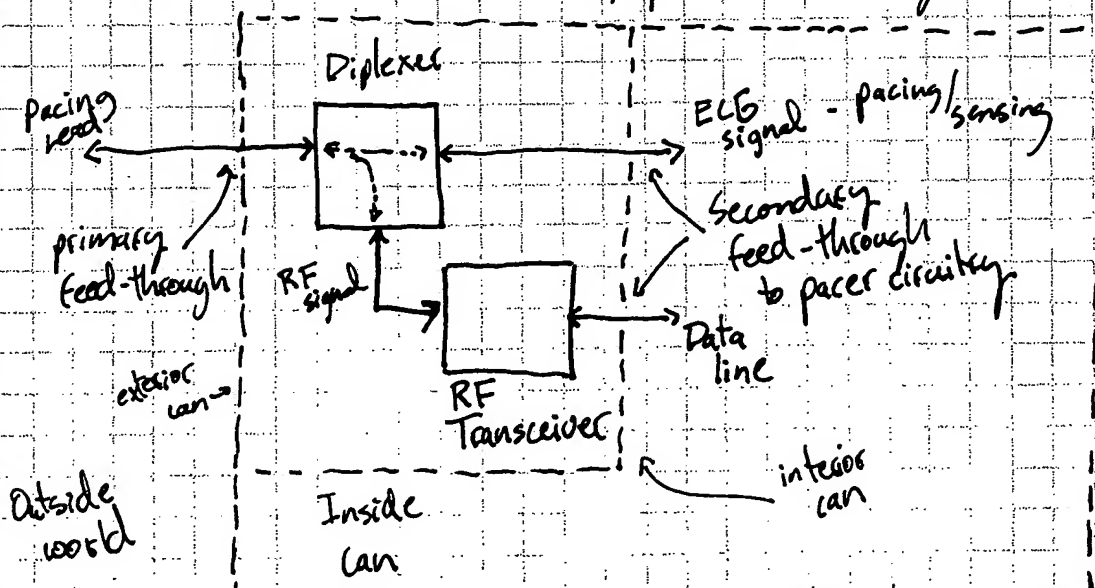 Diplexer
pacing
lead
ECG
signal - pacing/
sensing
primary
feed-through
RF
signal
Secondary
feed-through
to pacer circuitry
Data
line
exterior
can
RF
Transceiver
interior
can
Outside
world
Inside
can